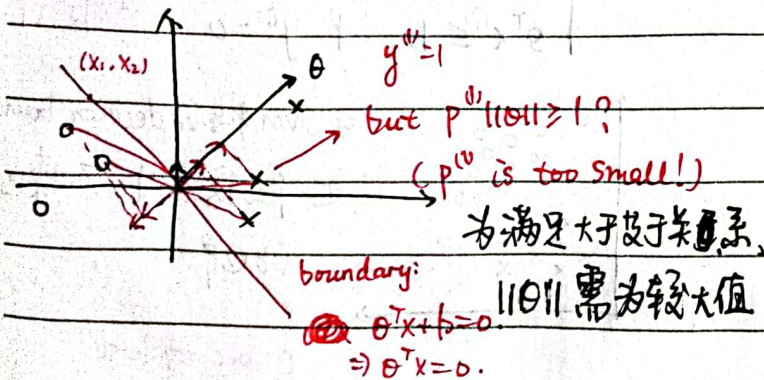 (x₁, x₂)
θ
y⁽¹⁾=1
but p⁽¹⁾||θ|| ≥ 1 ?
(p⁽¹⁾ is too small!)
为满足大于等于关系,
||θ|| 需为较大值
boundary:
θᵀx+b=0.
⇒ θᵀx=0.